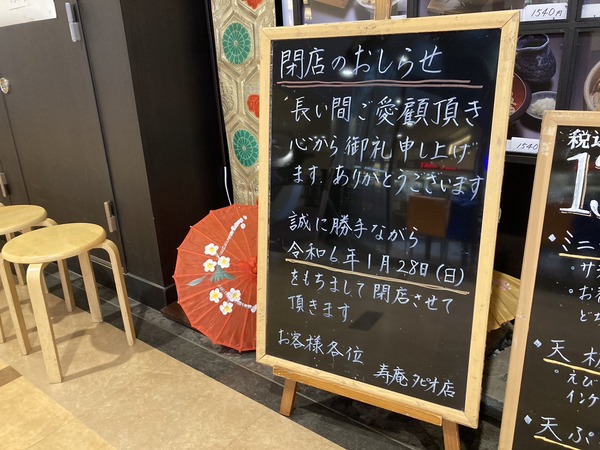 閉店のおしらせ
長い間ご愛顧頂き
心から御礼申し上げ
ます。ありがとうございます
誠に勝手ながら
令和6年1月28日(日)
をもちまして閉店させて
頂きます
お客様各位
寿庵タピオ店
1540円
1540
税込
・ミニ
・天
えび
インゲ
・天ぷ